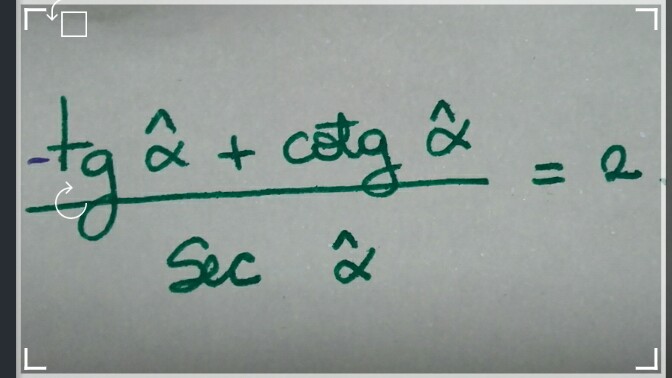 -tg α̂ + cotg α̂ = 2
sec α̂